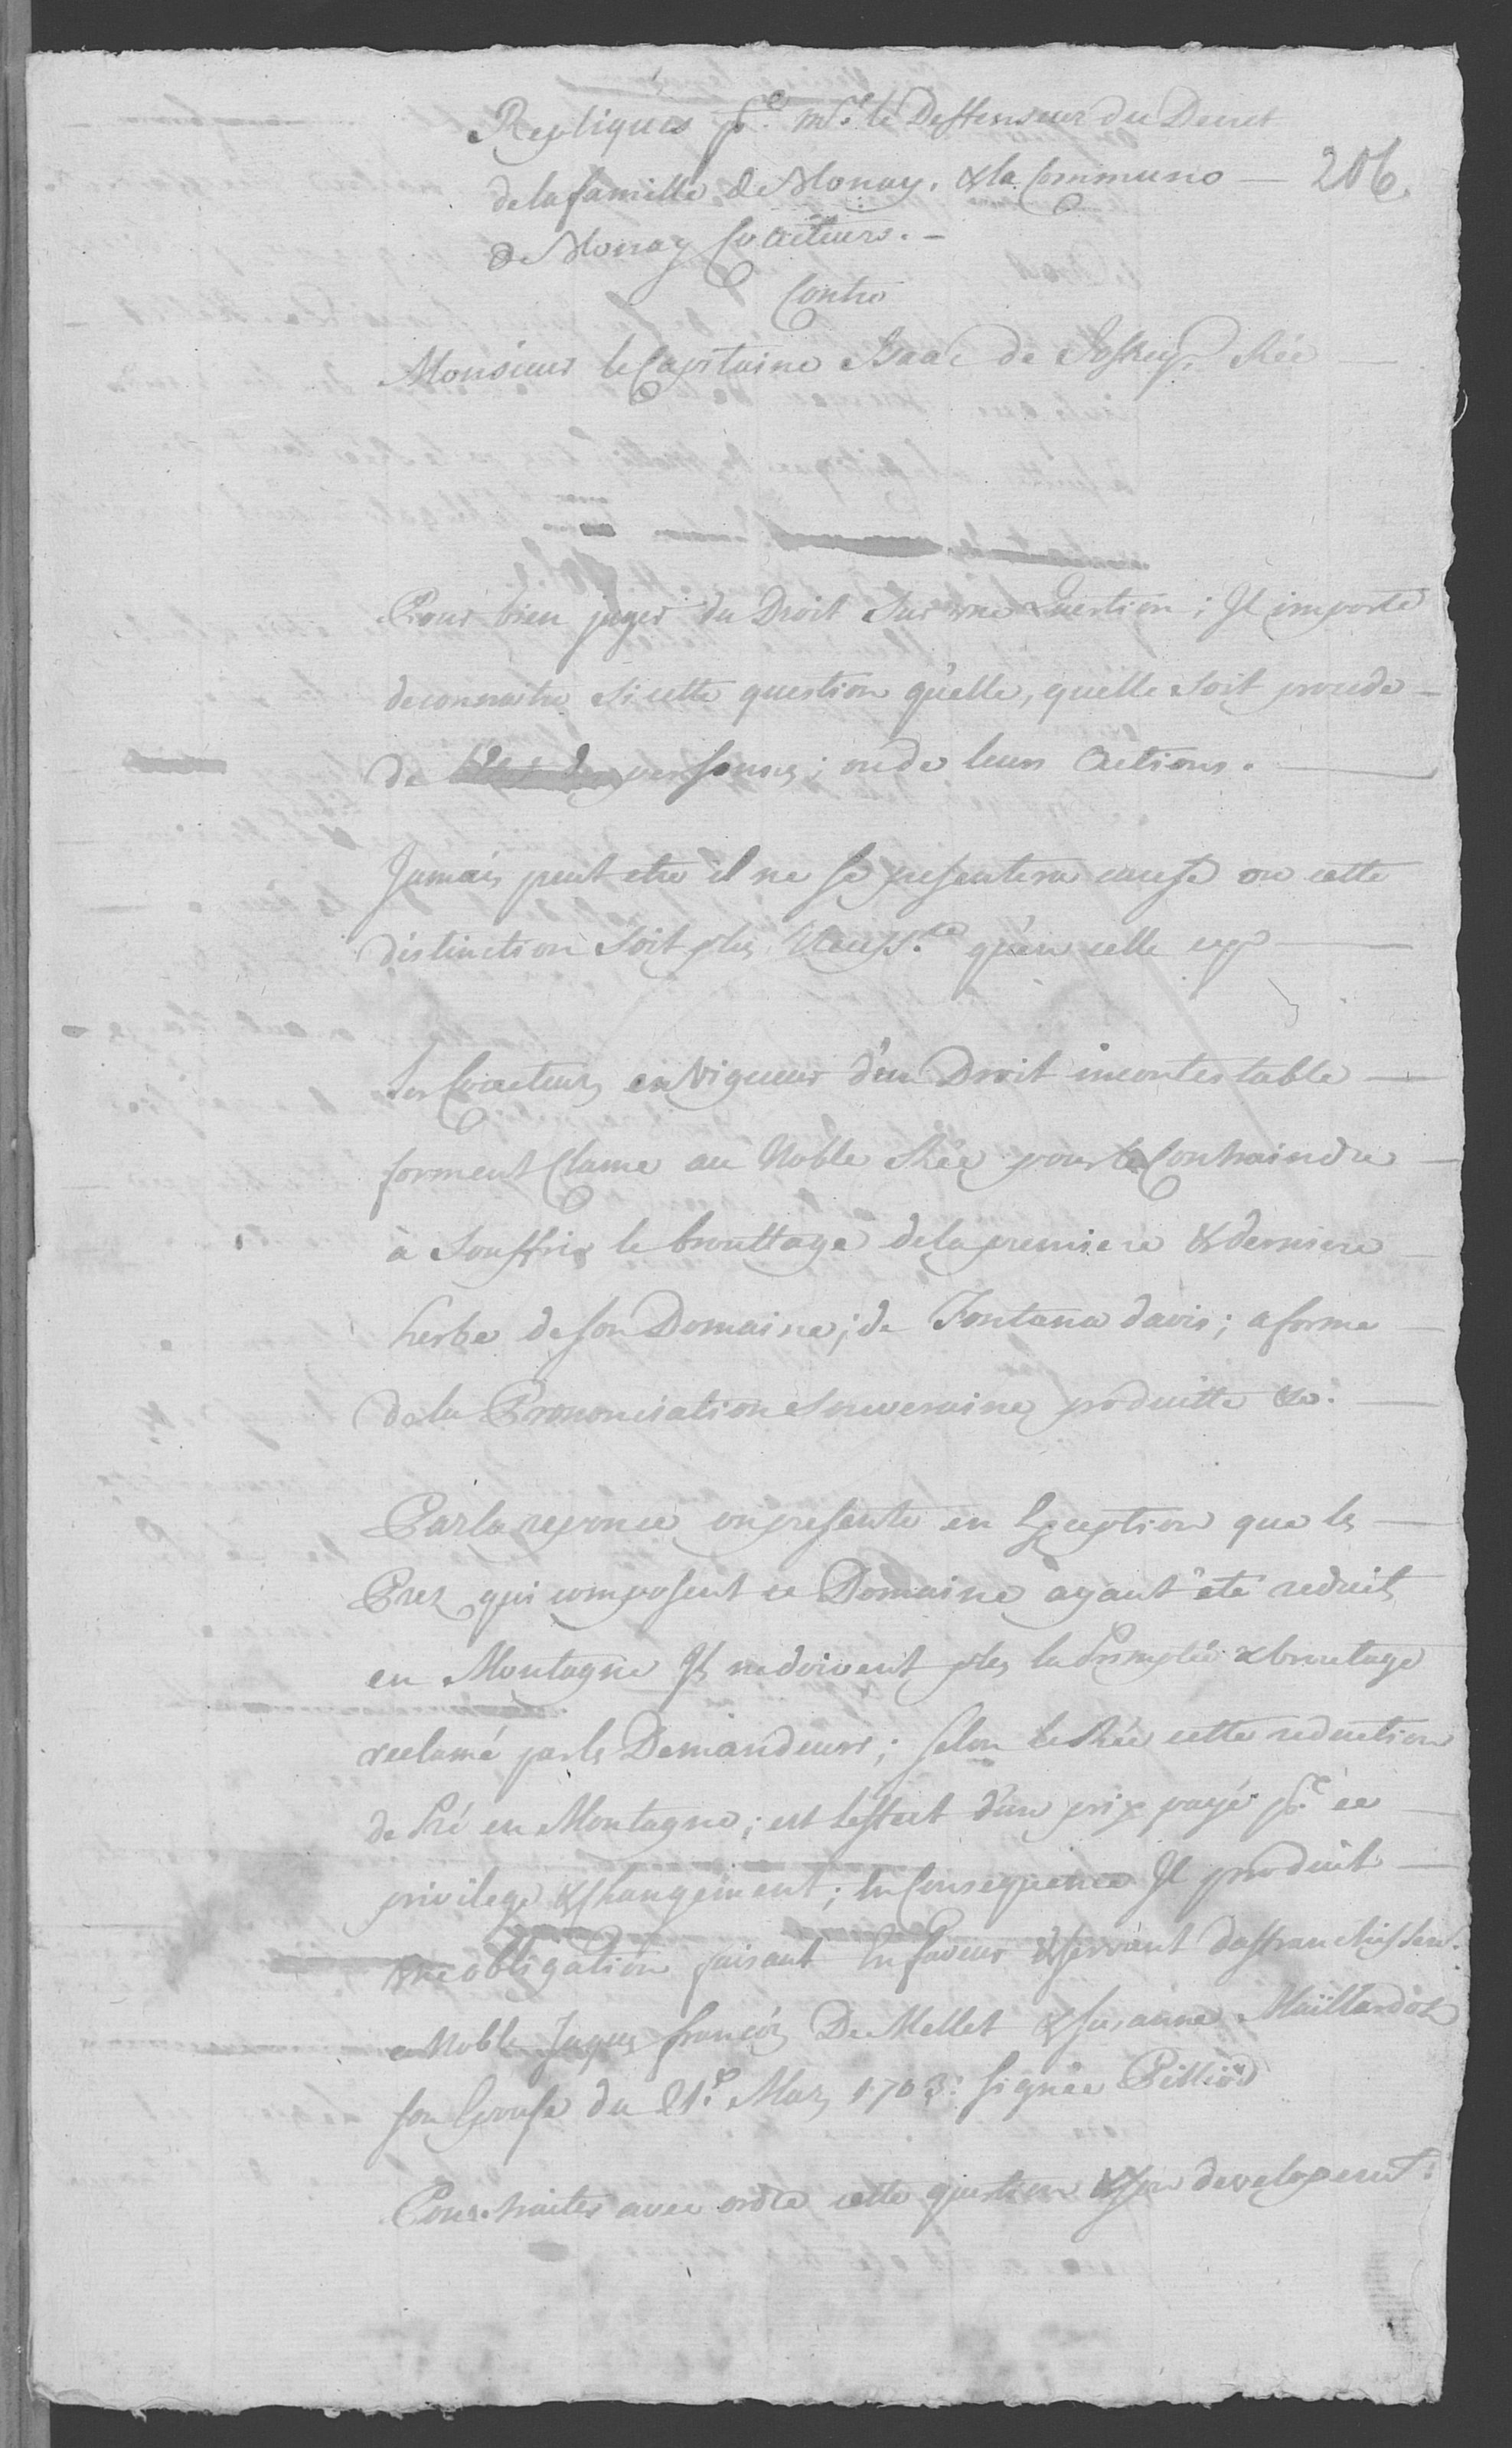 Repliques p.r mr. le Deffenseur du Decret
de la famille de Monay. & la Commune — 206.
de Monay Coacteurs. —
Contre
Monsieur le Capitaine Isaac de Rée
Pour bien juger du Droit sur une Question ; Il importe
de connoitre si cette question quelle, quelle soit procede
de personnes ; ou de leurs Actions.
Jamais peut etre il ne se presentera cause ou cette
distinction soit plus Necess.re qu'en celle cy
Les Coacteurs en Vigueur d'un Droit incontestable
forment Clame au Noble Rée pour le Contraindre
à Souffrir le brouttage de la premiere & derniere
herbe de son Domaine, de Fontana davis ; a forme
de la Prononciation Souveraine produitte &c.
Par la reponce on presente en Exception que les
Prez qui composent ce Domaine ayant été reduits
en Montagne Ils ne doivent plus la & broutage
reclamé par les Demandeurs ; selon le Rée cette reduction
de Pré en Montagne ; est leffect d'un prix payé p.r ce
privilege & Changement ; En Consequence Il produit
une obligation faisant En faveur & servant daffranchissem.t
a Noble Jaques françois De Mellet & Susanne Maillardoz
son Epouse du 21.e Mars 1703. Signée Pilliod
Pour traiter avec ordre cette question & son developem.t